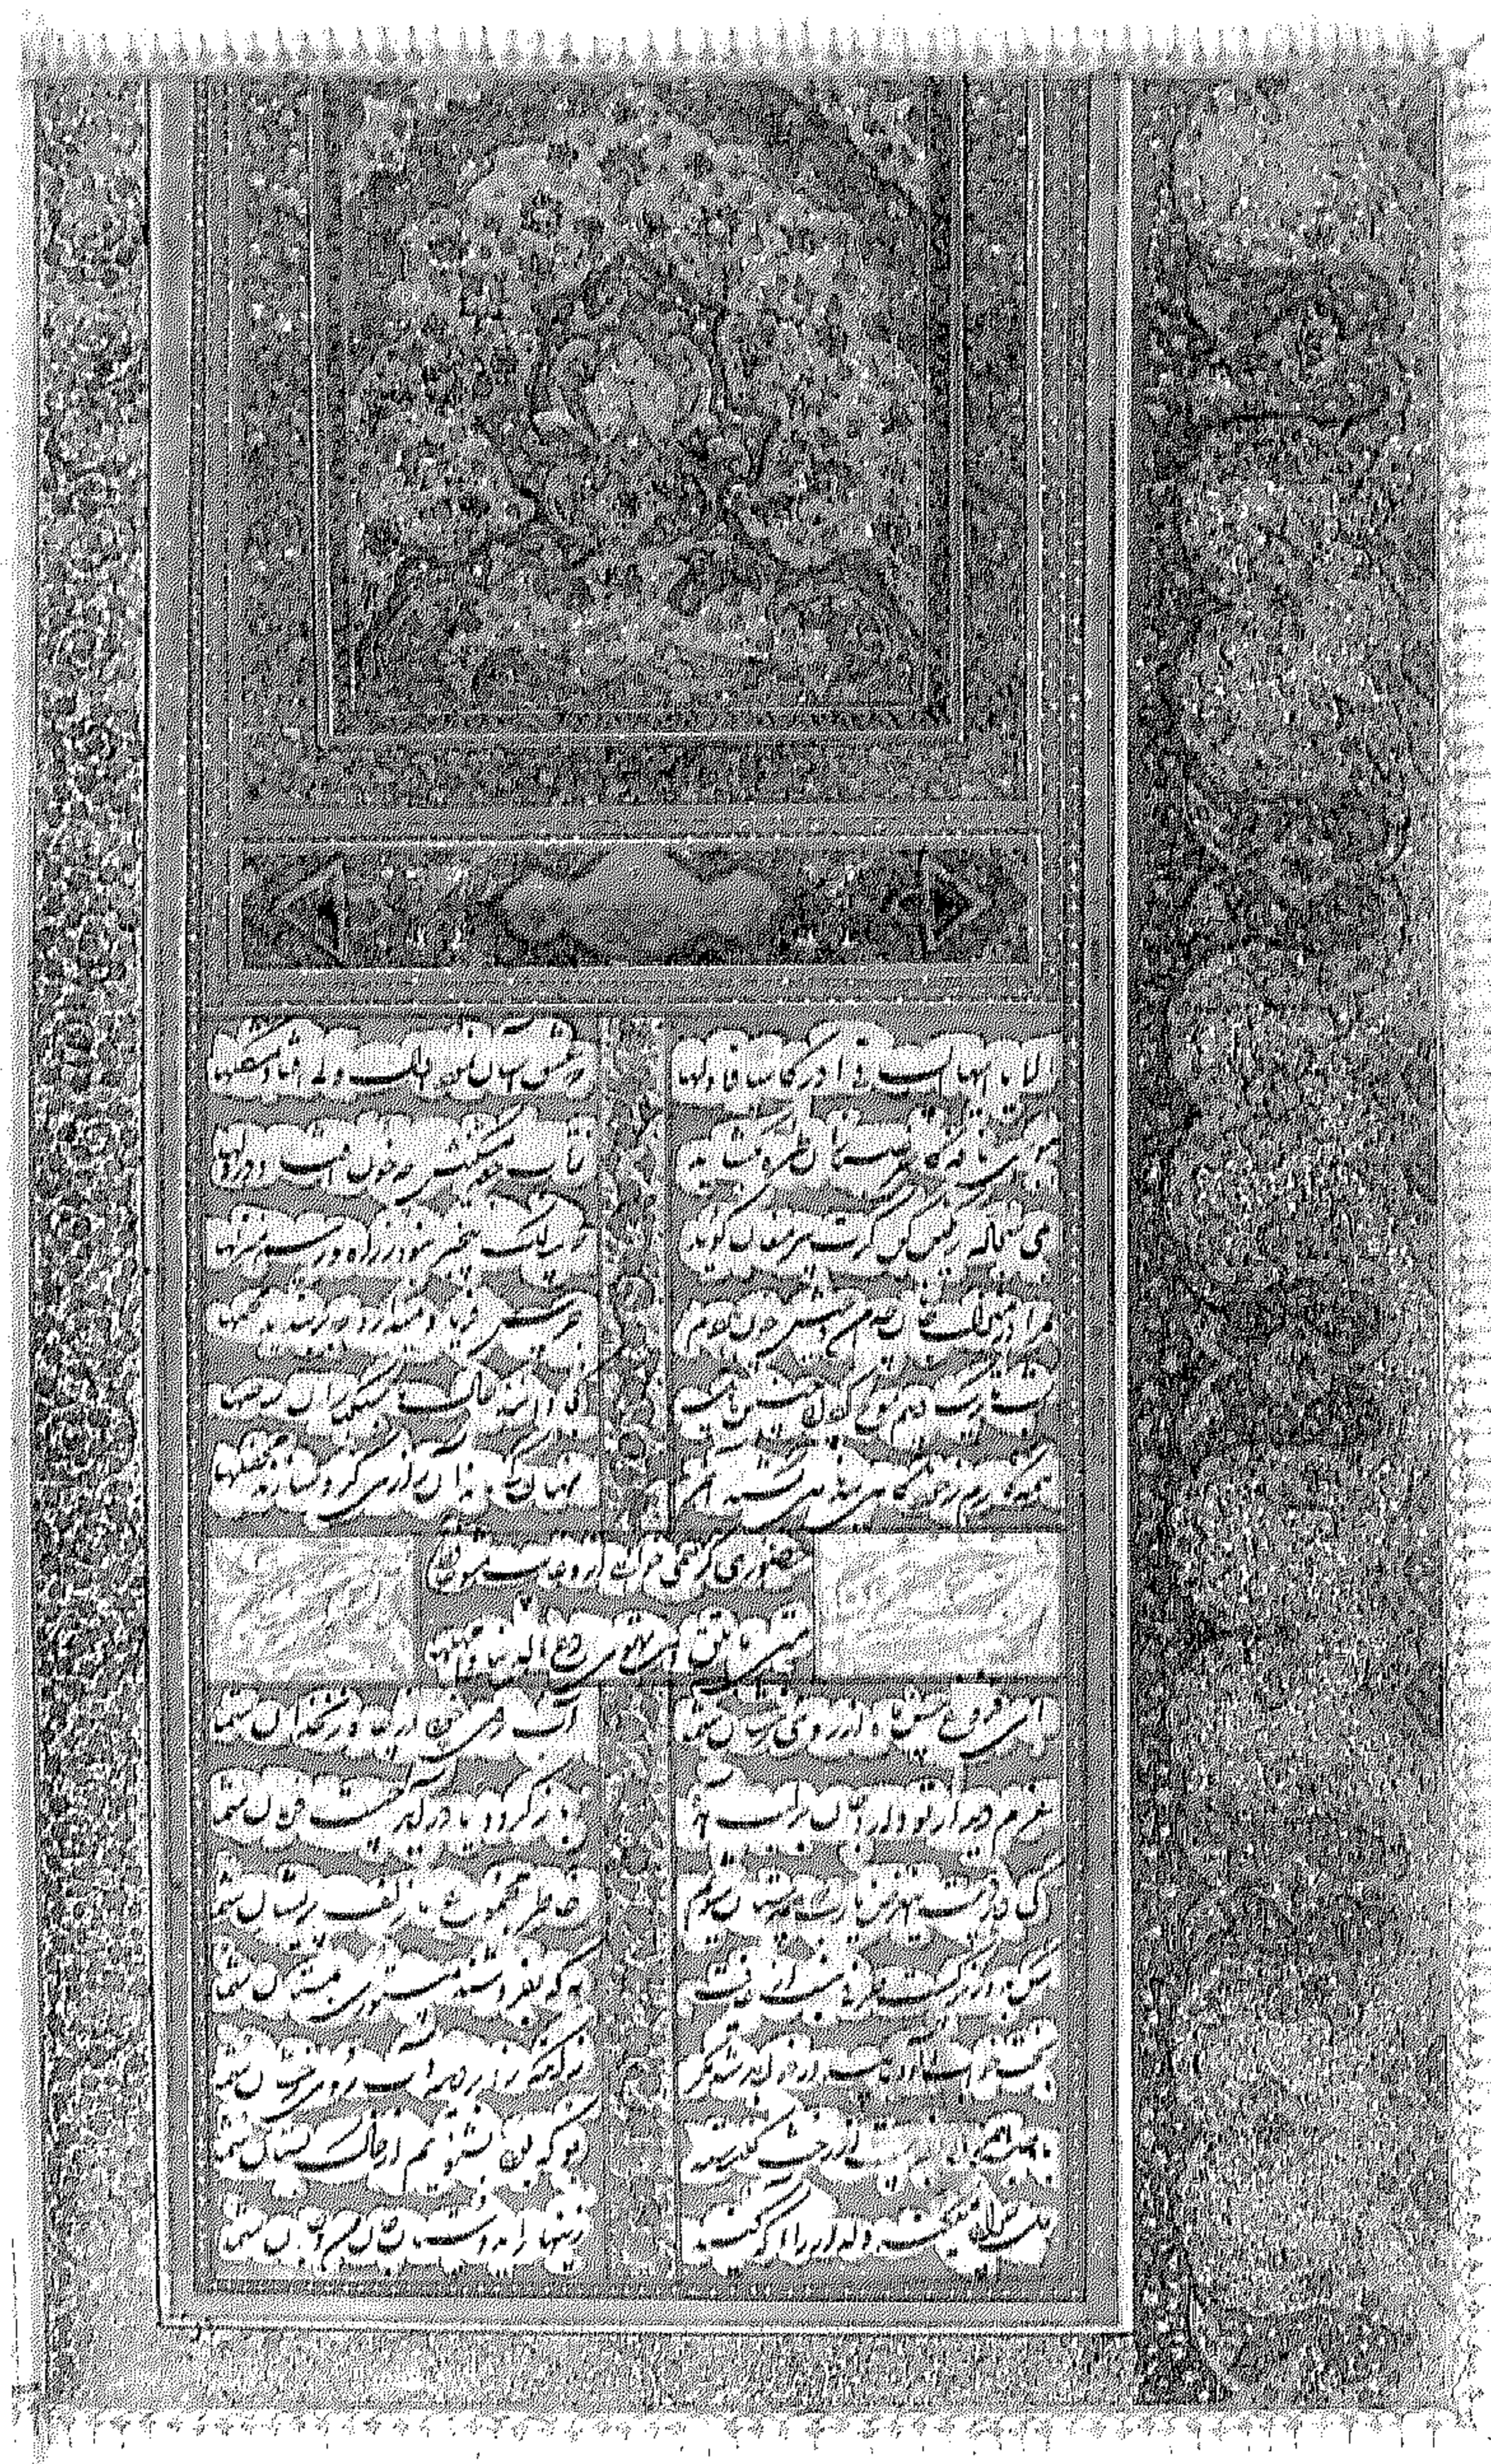 الا یا ایها الساقی ادر کاسا و ناولها که عشق آسان نمود اول ولی افتاد مشکلها
ببوی نافه کاخر صبا زان طره بگشاید ز تاب جعد مشکینش چه خون افتاد در دلها
بمی سجاده رنگین کن گرت پیر مغان گوید که سالک بیخبر نبود ز راه و رسم منزلها
مرا در منزل جانان چه امن عیش چون هر دم جرس فریاد میدارد که بربندید محملها
شب تاریک و بیم موج و گردابی چنین هایل کجا دانند حال ما سبکباران ساحلها
همه کارم ز خود کامی ببدنامی کشید آخر نهان کی ماند آن رازی کزو سازند محفلها
حضوری گر همی خواهی ازو غایب مشو حافظ
متی ما تلق من تهوی دع الدنیا و اهملها
ای فروغ ماه حسن از روی رخشان شما آب روی خوبی از چاه زنخدان شما
عزم دیدار تو دارد جان بر لب آمده باز گردد یا درآید چیست فرمان شما
کی دهد دست این غرض یا رب که همدستان شوند خاطر مجموع ما زلف پریشان شما
کس بدور نرگست طرفی نبست از عافیت به که نفروشند مستوری بمستان شما
بخت خواب آلود ما بیدار خواهد شد مگر زانکه زد بر دیده آب روی رخشان شما
با صبا همراه بفرست از رخت گلدسته بو که بوی بشنویم از خاک بستان شما
دل خرابی میکند دلدار را آگه کنید زینهار ای دوستان جان من و جان شما